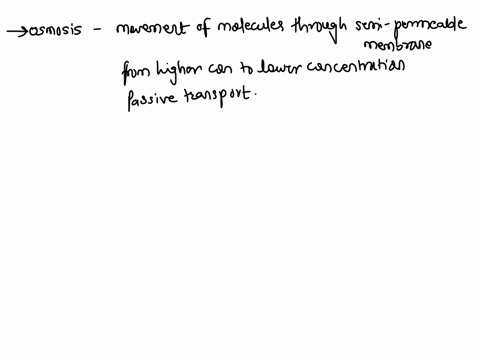 → osmosis - movement of molecules through semi-permeable
membrane
from higher con to lower concentration
Passive transport.